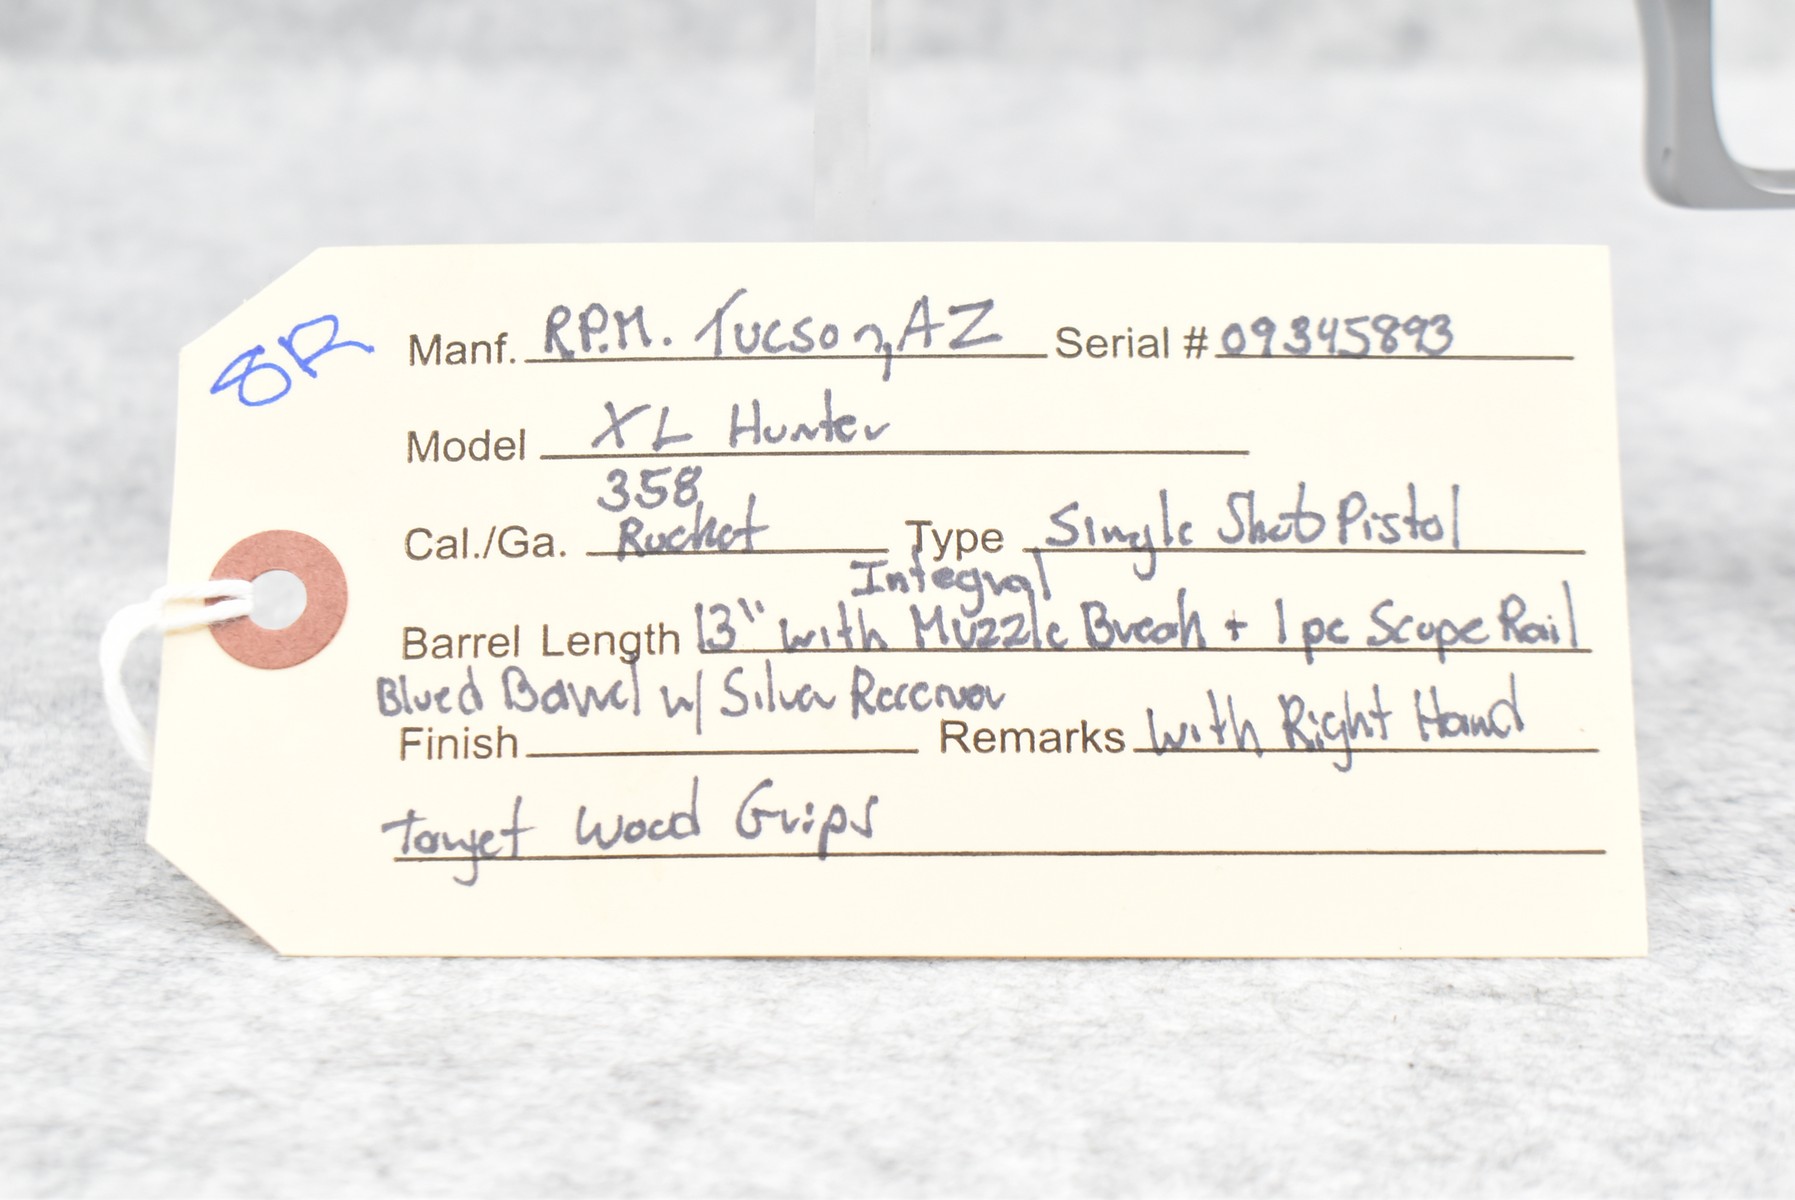 8R
Manf. R.P.M. Tucson, AZ Serial # 09345893
Model XL Hunter
358
Cal./Ga. Rocket Type Single Shot Pistol
Integral
Barrel Length 13" with Muzzle Break + 1 pc Scope Rail
Blued Barrel w/ Silver Receiver
Finish Remarks with Right Hand
Target Wood Grips